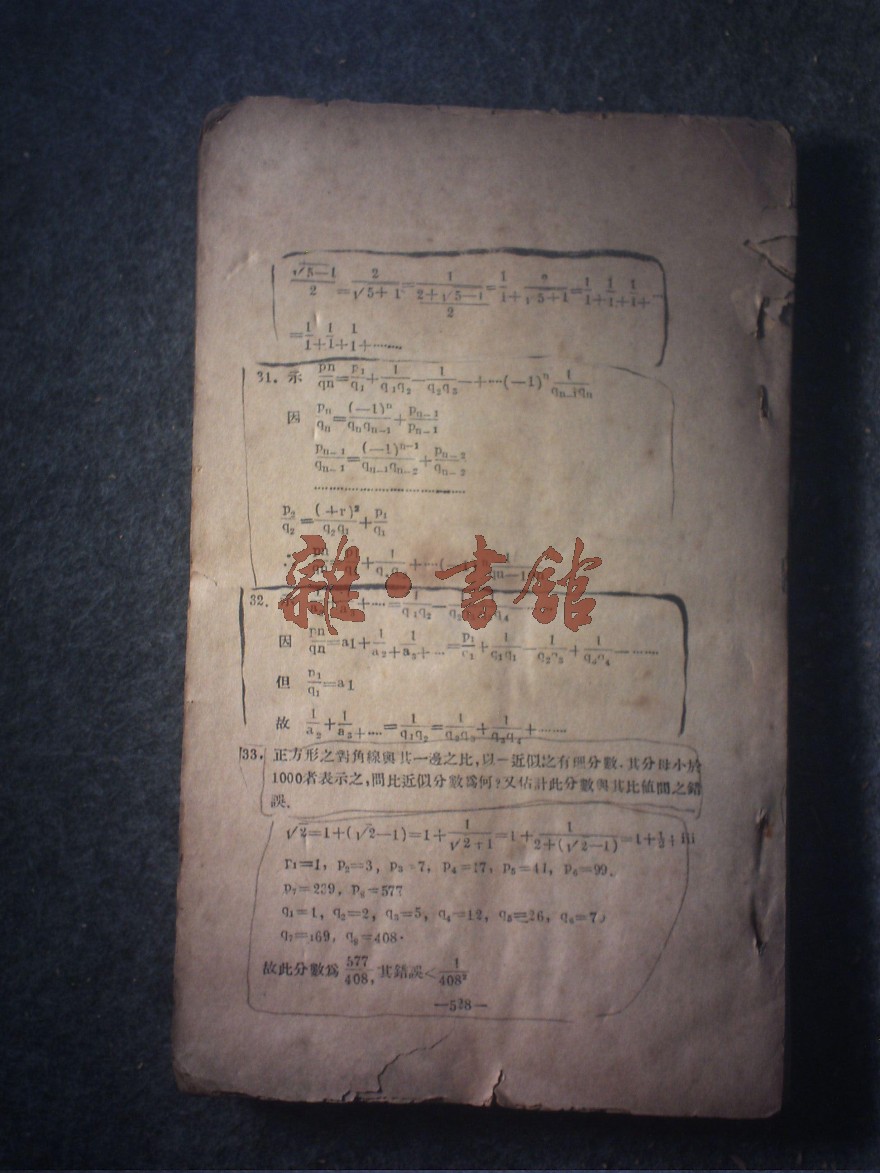 √5−1/2 = 2/√5+1 = 1/(2+√5−1/2) = 1/1+ 2/√5+1 = 1/1+ 1/1+ 1/1+
= 1/1+ 1/1+ 1/1+ ……
31. 示 pn/qn = p₁/q₁ + 1/q₁q₂ − 1/q₂q₃ −+…(−1)ⁿ 1/qₙ₋₁qₙ
因 pₙ/qₙ = (−1)ⁿ/qₙqₙ₋₁ + pₙ₋₁/pₙ₋₁
pₙ₋₁/qₙ₋₁ = (−1)ⁿ⁻¹/qₙ₋₁qₙ₋₂ + pₙ₋₂/qₙ₋₂
……………………………
p₂/q₂ = (+r)²/q₂q₁ + p₁/q₁
雜·書館
32.
因 pn/qn = a1 + 1/a₂+ 1/a₃+ … = p₁/q₁ + 1/q₁q₁ − 1/q₂q₃ + 1/q₃q₄ − ……
但 p₁/q₁ = a1
故 1/a₂ + 1/a₃+ …. = 1/q₁q₂ = 1/q₂q₃ + 1/q₃q₄ + ……
33. 正方形之對角線與其一邊之比,以一近似之有理分數,其分母小於
1000者表示之,問比近似分數爲何?又估計此分數與其比值間之錯
誤.
√2=1+(√2−1)=1+ 1/√2+1 =1+ 1/2+(√2−1) =1+½+
p₁=1, p₂=3, p₃=7, p₄=17, p₅=41, p₆=99,
p₇=239, p₈=577
q₁=1, q₂=2, q₃=5, q₄=12, q₅=26, q₆=70
q₇=169, q₈=408.
故此分數爲 577/408, 其錯誤< 1/408²
—528—